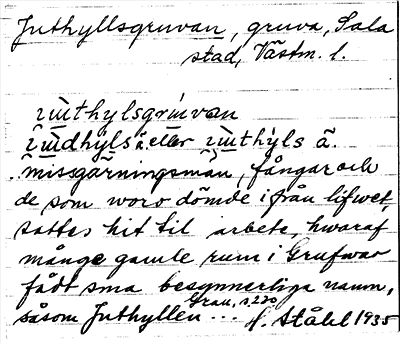 Juthyllsgruvan, gruva, Sala
stad, Västm. l.
juthylsgruvan
judhyls ä eller juthyls ä.
missgärningsmän, fångar och
de som woro dömde ifrån lifwet,
sattes hit til arbete, hwaraf
många gamle rum i Grufwan
fådt sina besynnerliga namn,
såsom Juthyllen ... Grau, s. 220
H. Ståhl 1935